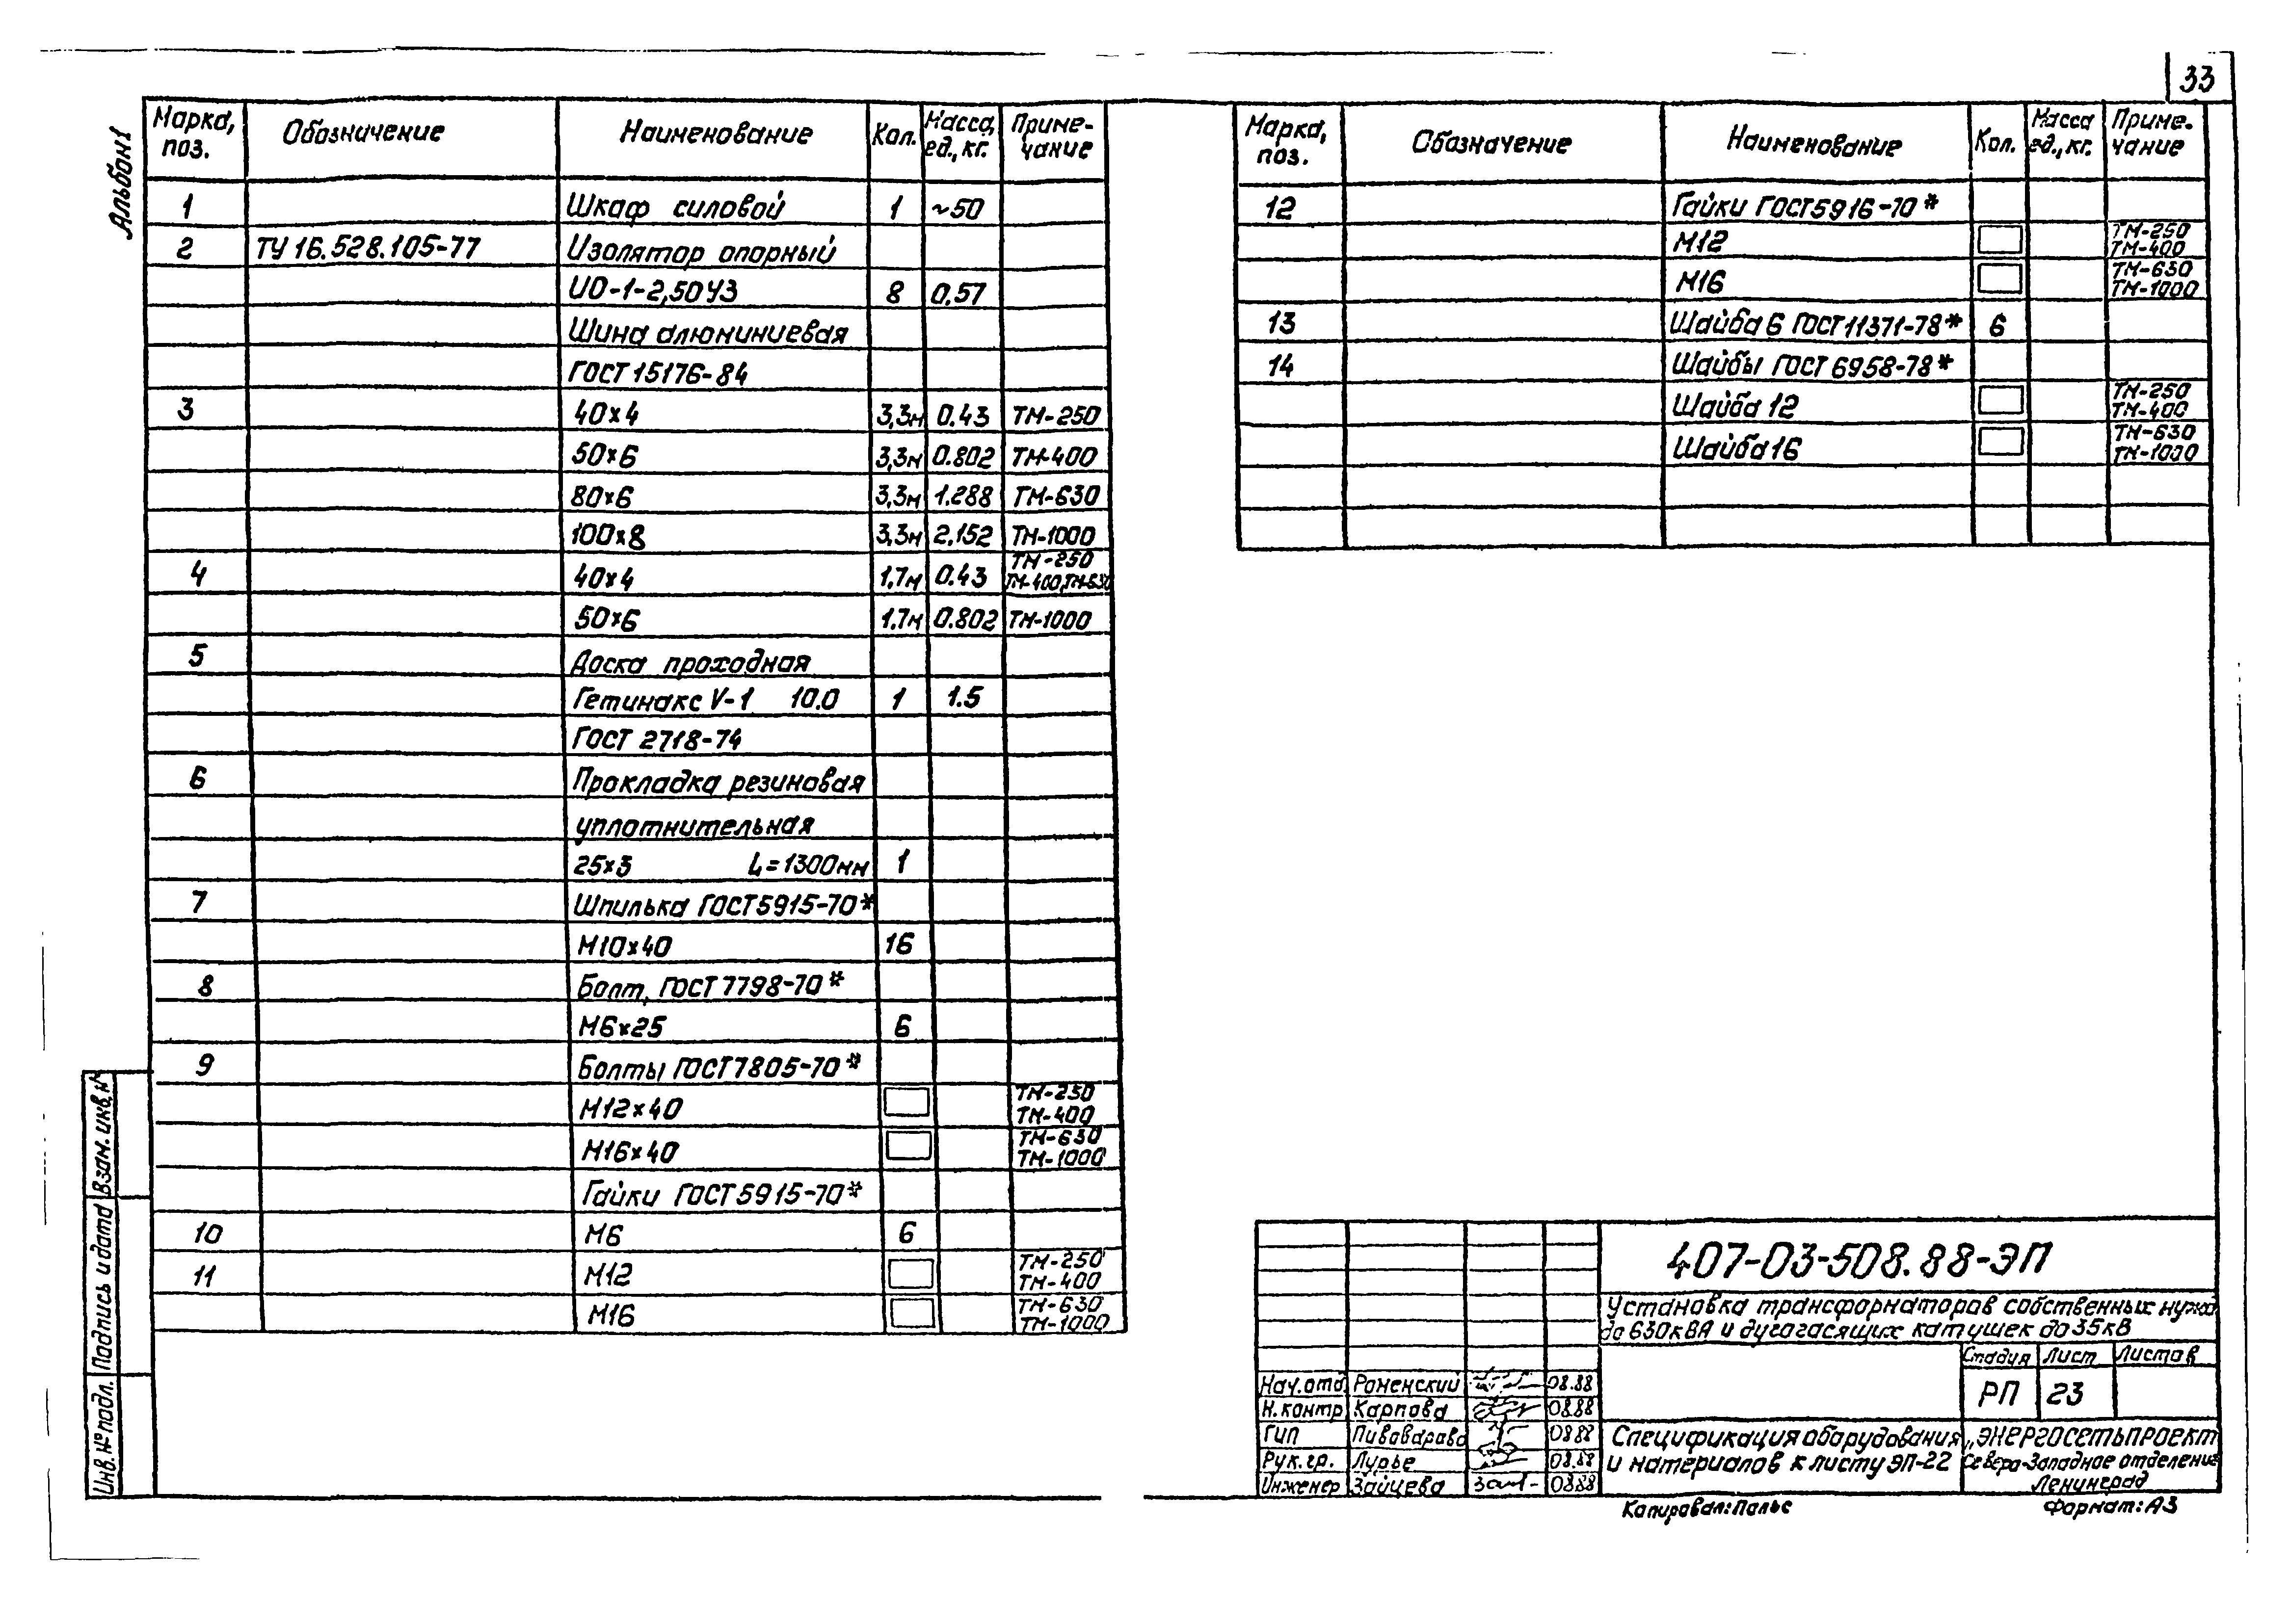 33
Альбом 1
Марка, поз. Обозначение Наименование Кол. Масса, ед., кг. Приме-чание
1 Шкаф силовой 1 ~50
2 ТУ 16.528.105-77 Изолятор опорный
ИО-1-2,50 У3 8 0,57
Шина алюминиевая
ГОСТ 15176-84
3 40×4 3,3м 0.43 ТМ-250
50×6 3,3м 0.802 ТМ-400
80×6 3,3м 1.288 ТМ-630
100×8 3,3м 2.152 ТМ-1000
4 40×4 1,7м 0.43 ТМ-250 ТМ-400, ТМ-630
50×6 1.7м 0.802 ТМ-1000
5 Доска проходная
Гетинакс V-1 10.0 1 1.5
ГОСТ 2718-74
6 Прокладка резиновая
уплотнительная
25×3 L=1300мм 1
7 Шпилька ГОСТ 5915-70*
М10×40 16
8 Болт, ГОСТ 7798-70*
М6×25 6
9 Болты ГОСТ 7805-70*
М12×40 ТМ-250 ТМ-400
М16×40 ТМ-630 ТМ-1000
Гайки ГОСТ 5915-70*
10 М6 6
11 М12 ТМ-250 ТМ-400
М16 ТМ-630 ТМ-1000
Марка, поз. Обозначение Наименование Кол. Масса ед., кг. Приме-чание
12 Гайки ГОСТ 5916-70*
М12 ТМ-250 ТМ-400
М16 ТМ-630 ТМ-1000
13 Шайба 6 ГОСТ 11371-78* 6
14 Шайбы ГОСТ 6958-78*
Шайба 12 ТМ-250 ТМ-400
Шайба 16 ТМ-630 ТМ-1000
Взам. инв. №
Подпись и дата
Инв. № подл.
407-03-508.88-ЭП
Установка трансформаторов собственных нужд
до 630кВА и дугогасящих катушек до 35кВ
Стадия Лист Листов
РП 23
Нач. отд. Роменский 08.88
Н. контр Карпова 08.88
ГИП Пивоварова 08.88
Рук. гр. Лурье 08.88
Инженер Зайцева 08.88
Спецификация оборудования
и материалов к листу ЭП-22
„ЭНЕРГОСЕТЬПРОЕКТ
Северо-Западное отделение
Ленинград
Копировал: Польс
Формат: А3